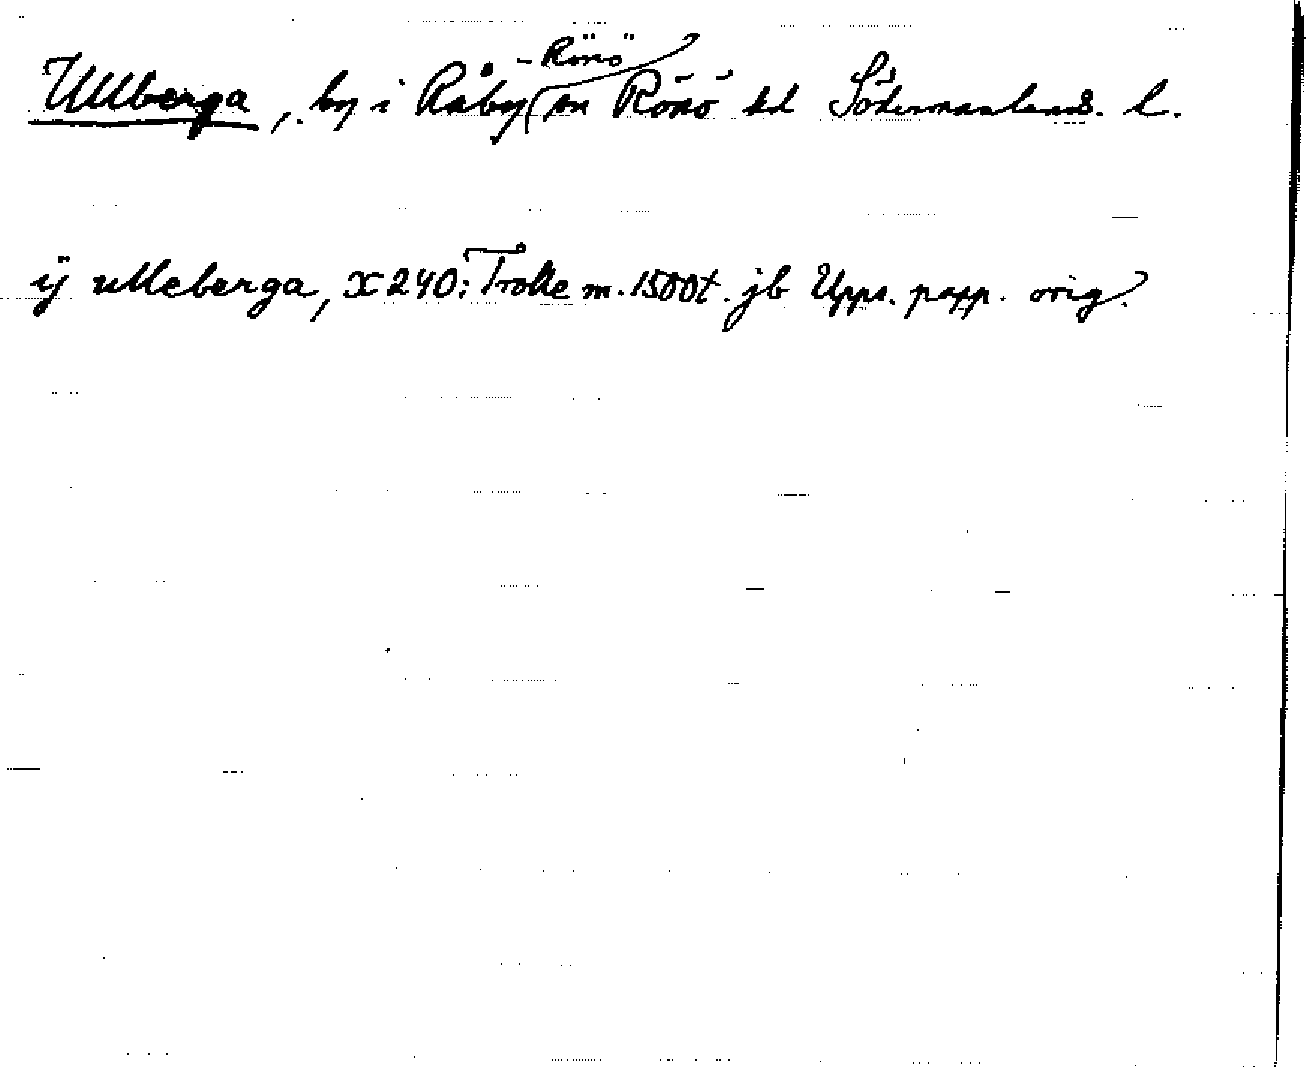 Ullberga, by i Råby-Rönö sn Rönö hd Södermanlands l.
ÿ ulleberga, X 240: Trolle m. 1500t. jb Upps. papp. orig.